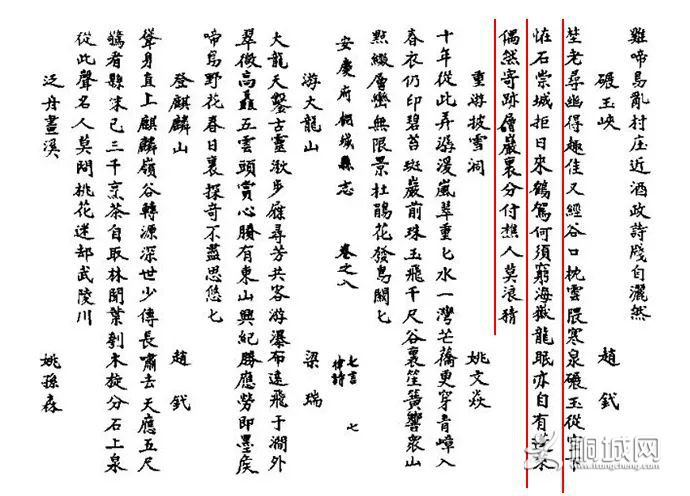 雞啼鳥亂村庄近酒政詩牋自灑然
碾玉峽 趙釴
埜老尋幽得趣佳又經谷口枕雲隈寒泉碾玉從空下
怪石崇城拒日來鶴駕何須窮海嶽龍眠亦自有蓬萊
偶然寄跡層巖裏分付樵人莫浪猜
重游披雪洞 姚文焱
十年從此弄潺湲嵐翠重七水一灣芒屩更穿青嶂入
春衣仍印碧苔斑巖前珠玉飛千尺谷裏笙簧響衆山
點綴層巒無限景杜鵑花發鳥關七
安慶府桐城縣志 卷之八 七言律詩 七
游大龍山 梁瑞
大龍天鑿古靈湫步屧尋芳共客游瀑布遠飛于澗外
翠微高矗五雲頭賞心勝有東山興紀勝應勞即墨侯
啼鳥野花春日裏探奇不盡思悠七
登麒麟山 趙釴
聳身直上麒麟嶺谷轉源深世少傳長嘯去天應五尺
騎者縣床已三千烹茶自取林間葉剖木旋分石上泉
從此聲名人莫問桃花迷却武陵川
泛舟畫溪 姚孫森
桐城网
www.itongcheng.com